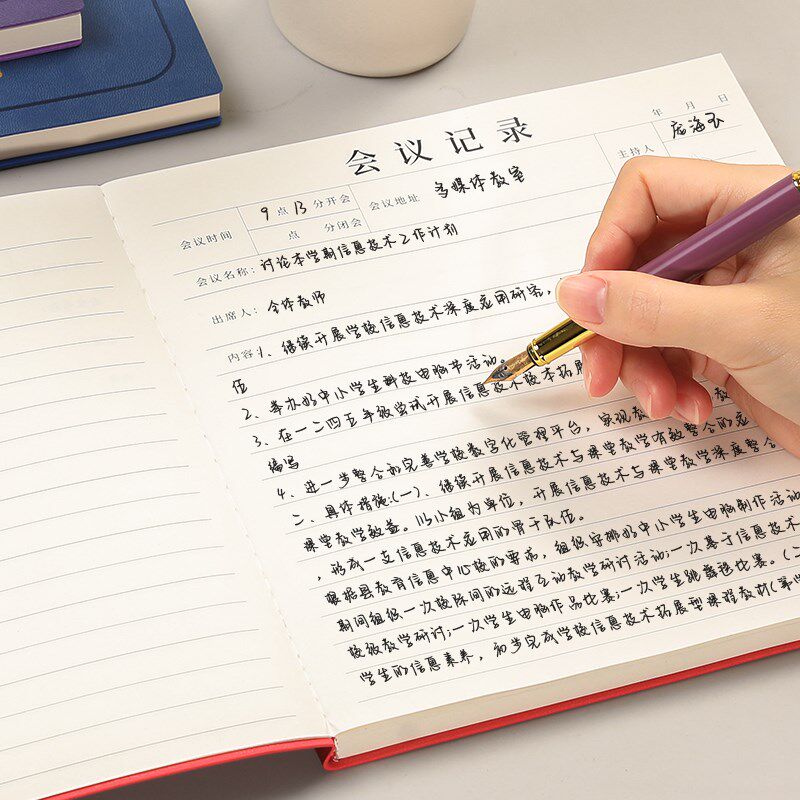 会议记录
年 月 日
会议时间 9点13分开会 会议地址 多媒体教室 主持人 庞海玉
点 分闭会
会议名称：讨论本学期信息技术工作计划
出席人：全体教师
内容：1、继续开展学校信息技术深度应用研究，
伍
2、举办好中小学生科技电脑节活动。
3、在一二四五年级尝试开展信息技术校本拓展 教
编写
4、进一步整合和完善学校数字化管理平台，实现教
二、具体措施：(一)、继续开展信息技术与课堂教学有效整合的应
课堂教学效益。以小组为单位，开展信息技术与课堂教学深度整合
，形成一支信息技术应用的骨干队伍。
根据县教育信息中心校的要求，组织安排好中小学生电脑制作活动
期间组织一次校际间的远程互动教学研讨活动；一次基于信息技术
校级教学研讨；一次学生电脑作品比赛；一次学生跳舞毯比赛。(二
学生的信息素养，初步完成学校信息技术拓展型课程教材(第